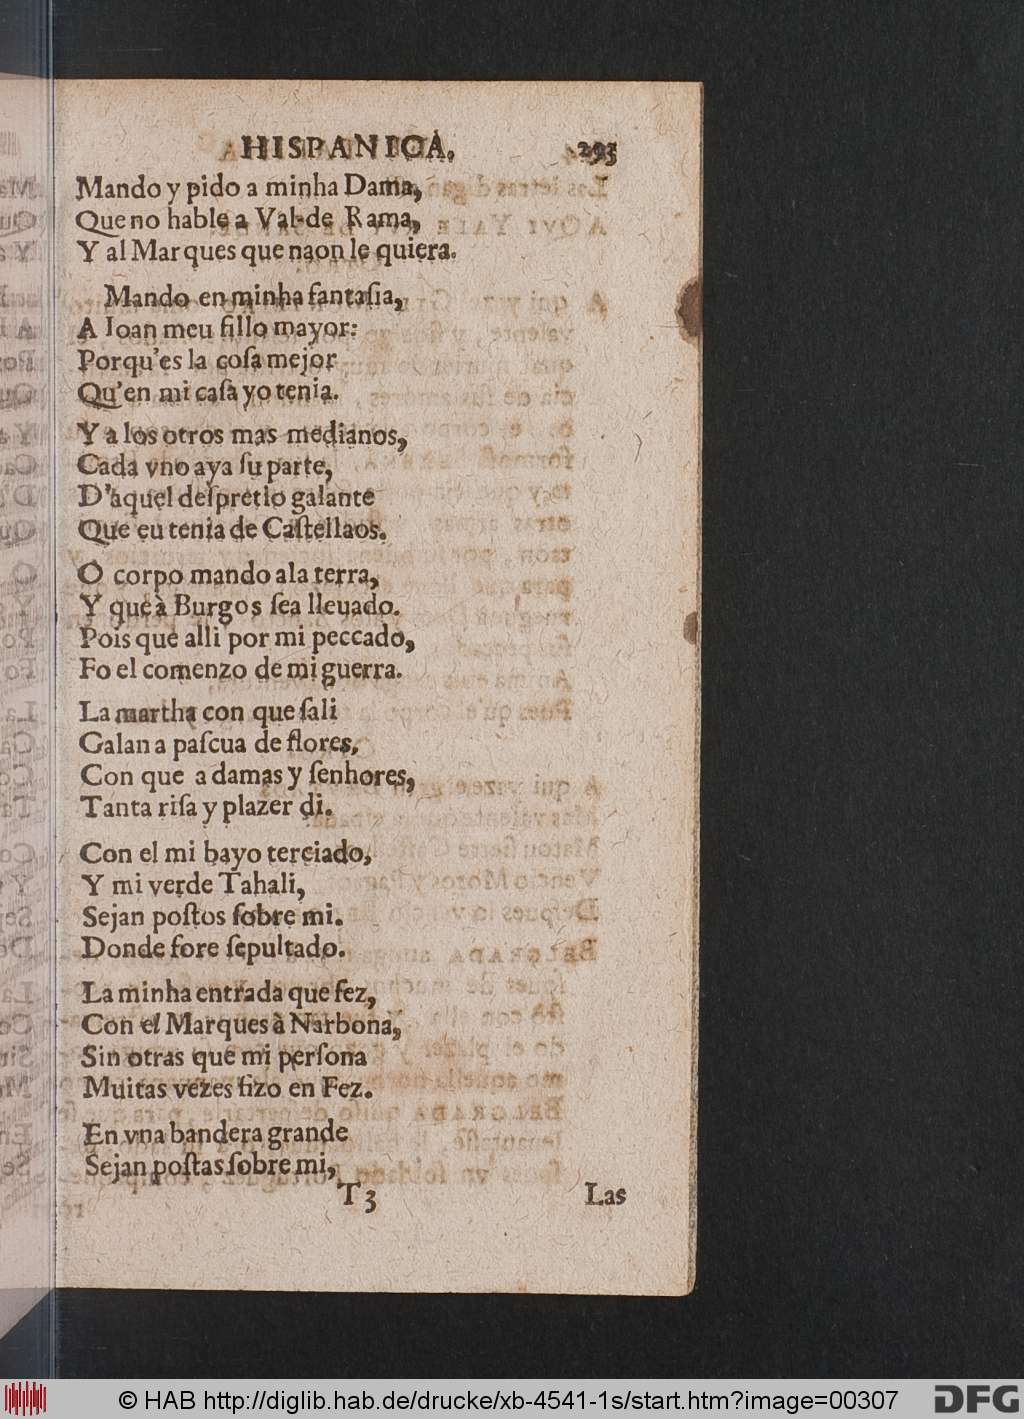 HISPANICA. 293
Mando y pido a minha Dama,
Que no hable a Val-de Rama,
Y al Marques que naon le quiera.
Mando en minha fantaſia,
A Ioan meu fillo mayor:
Porqu'es la coſa mejor
Qu'en mi caſa yo tenia.
Y a los otros mas medianos,
Cada vno aya ſu parte,
D'aquel deſpretio galante
Que eu tenia de Caſtellaos.
O corpo mando a la terra,
Y que à Burgos ſea lleuado.
Pois que alli por mi peccado,
Fo el comenzo de mi guerra.
La martha con que ſali
Galan a paſcua de flores,
Con que a damas y ſenhores,
Tanta riſa y plazer di.
Con el mi bayo terciado,
Y mi verde Tahali,
Sejan poſtos ſobre mi.
Donde fore ſepultado.
La minha entrada que fez,
Con el Marques à Narbona,
Sin otras que mi perſona
Muitas vezes fizo en Fez.
En vna bandera grande
Sejan poſtas ſobre mi,
T 3 Las
© HAB http://diglib.hab.de/drucke/xb-4541-1s/start.htm?image=00307 DFG